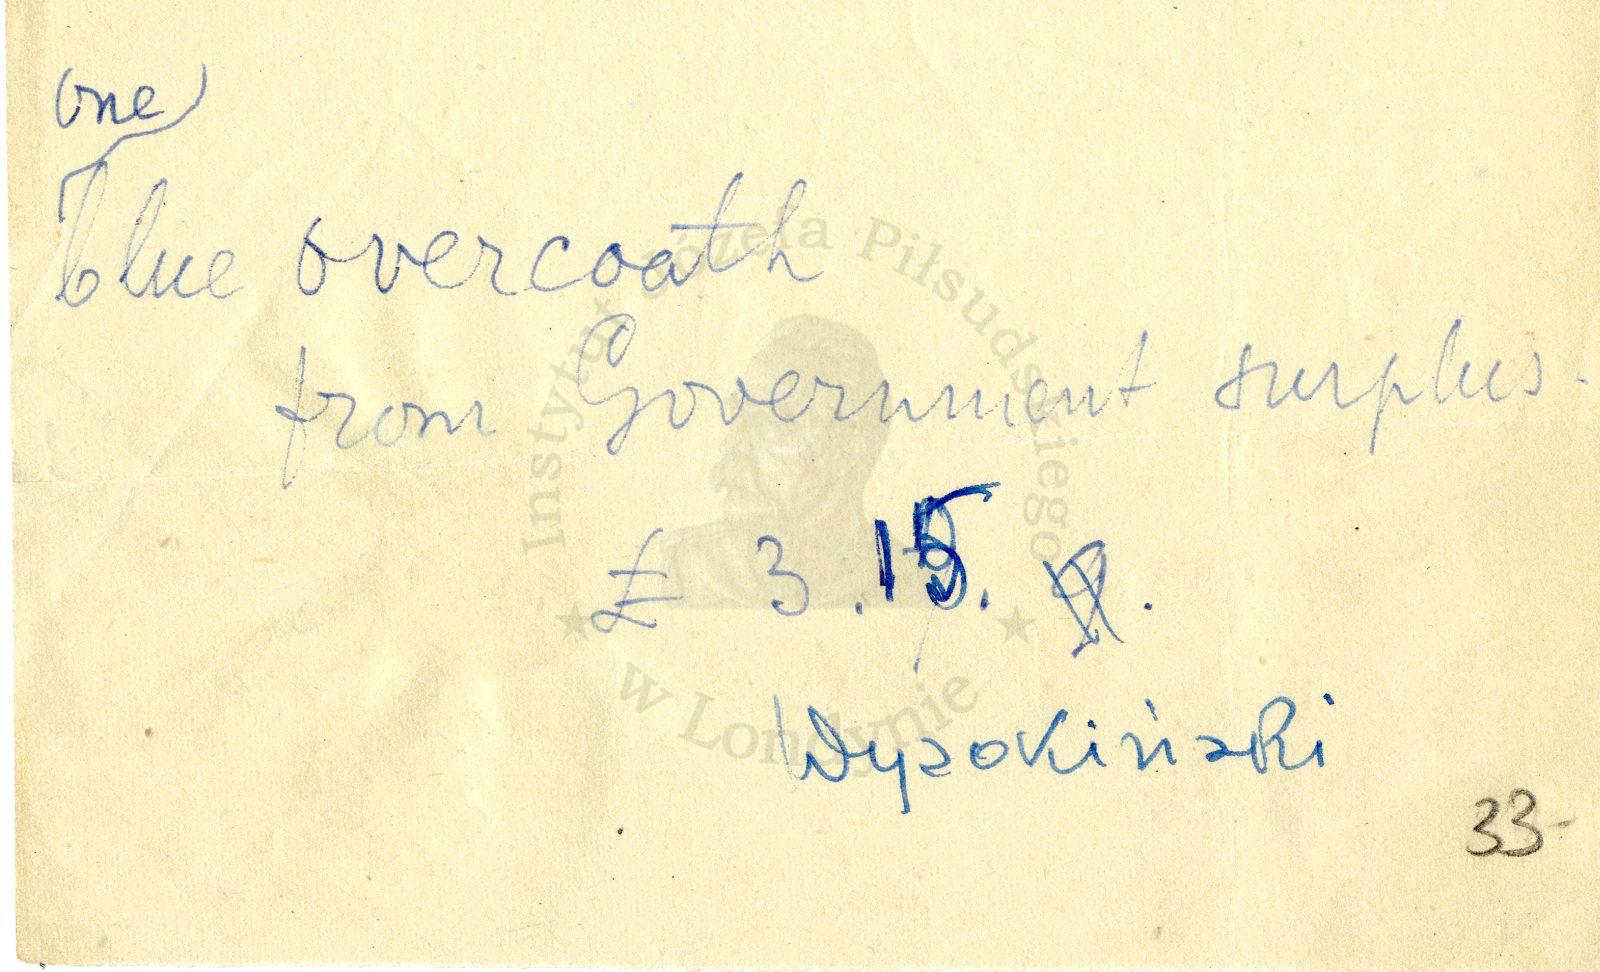 one
blue overcoath
from Government surplus.
£ 3.15.
Wysokiński
33-
Instytut Józefa Piłsudskiego
w Londynie